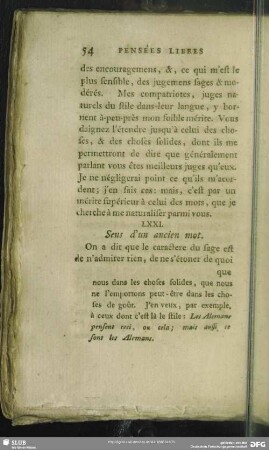 54 PENSÉES LIBRES
des encouragemens, &, ce qui m'est le
plus sensible, des jugemens sages & mo-
dérés. Mes compatriotes, juges na-
turels du stile dans-leur langue, y bor-
nent à-peu-près mon foible mérite. Vous
daignez l'étendre jusqu'à celui des cho-
ses, & des choses solides, dont ils me
permettront de dire que généralement
parlant vous êtes meilleurs juges qu'eux.
Je ne négligerai point ce qu'ils m'accor-
dent; j'en fais cas: mais, c'est par un
mérite supérieur à celui des mots, que je
cherche à me naturaliser parmi vous.
LXXI.
Sens d'un ancien mot.
On a dit que le caractere du sage est
de n'admirer rien, de ne s'étoner de quoi
que
nous dans les choses solides, que nous
ne l'emportons peut-être dans les cho-
ses de goût. J'en veux, par exemple,
à ceux dont c'est là le stile: Les Alemans
pensent ceci, ou cela; mais aussi, ce
sont les Alemans.
SLUB
DFG